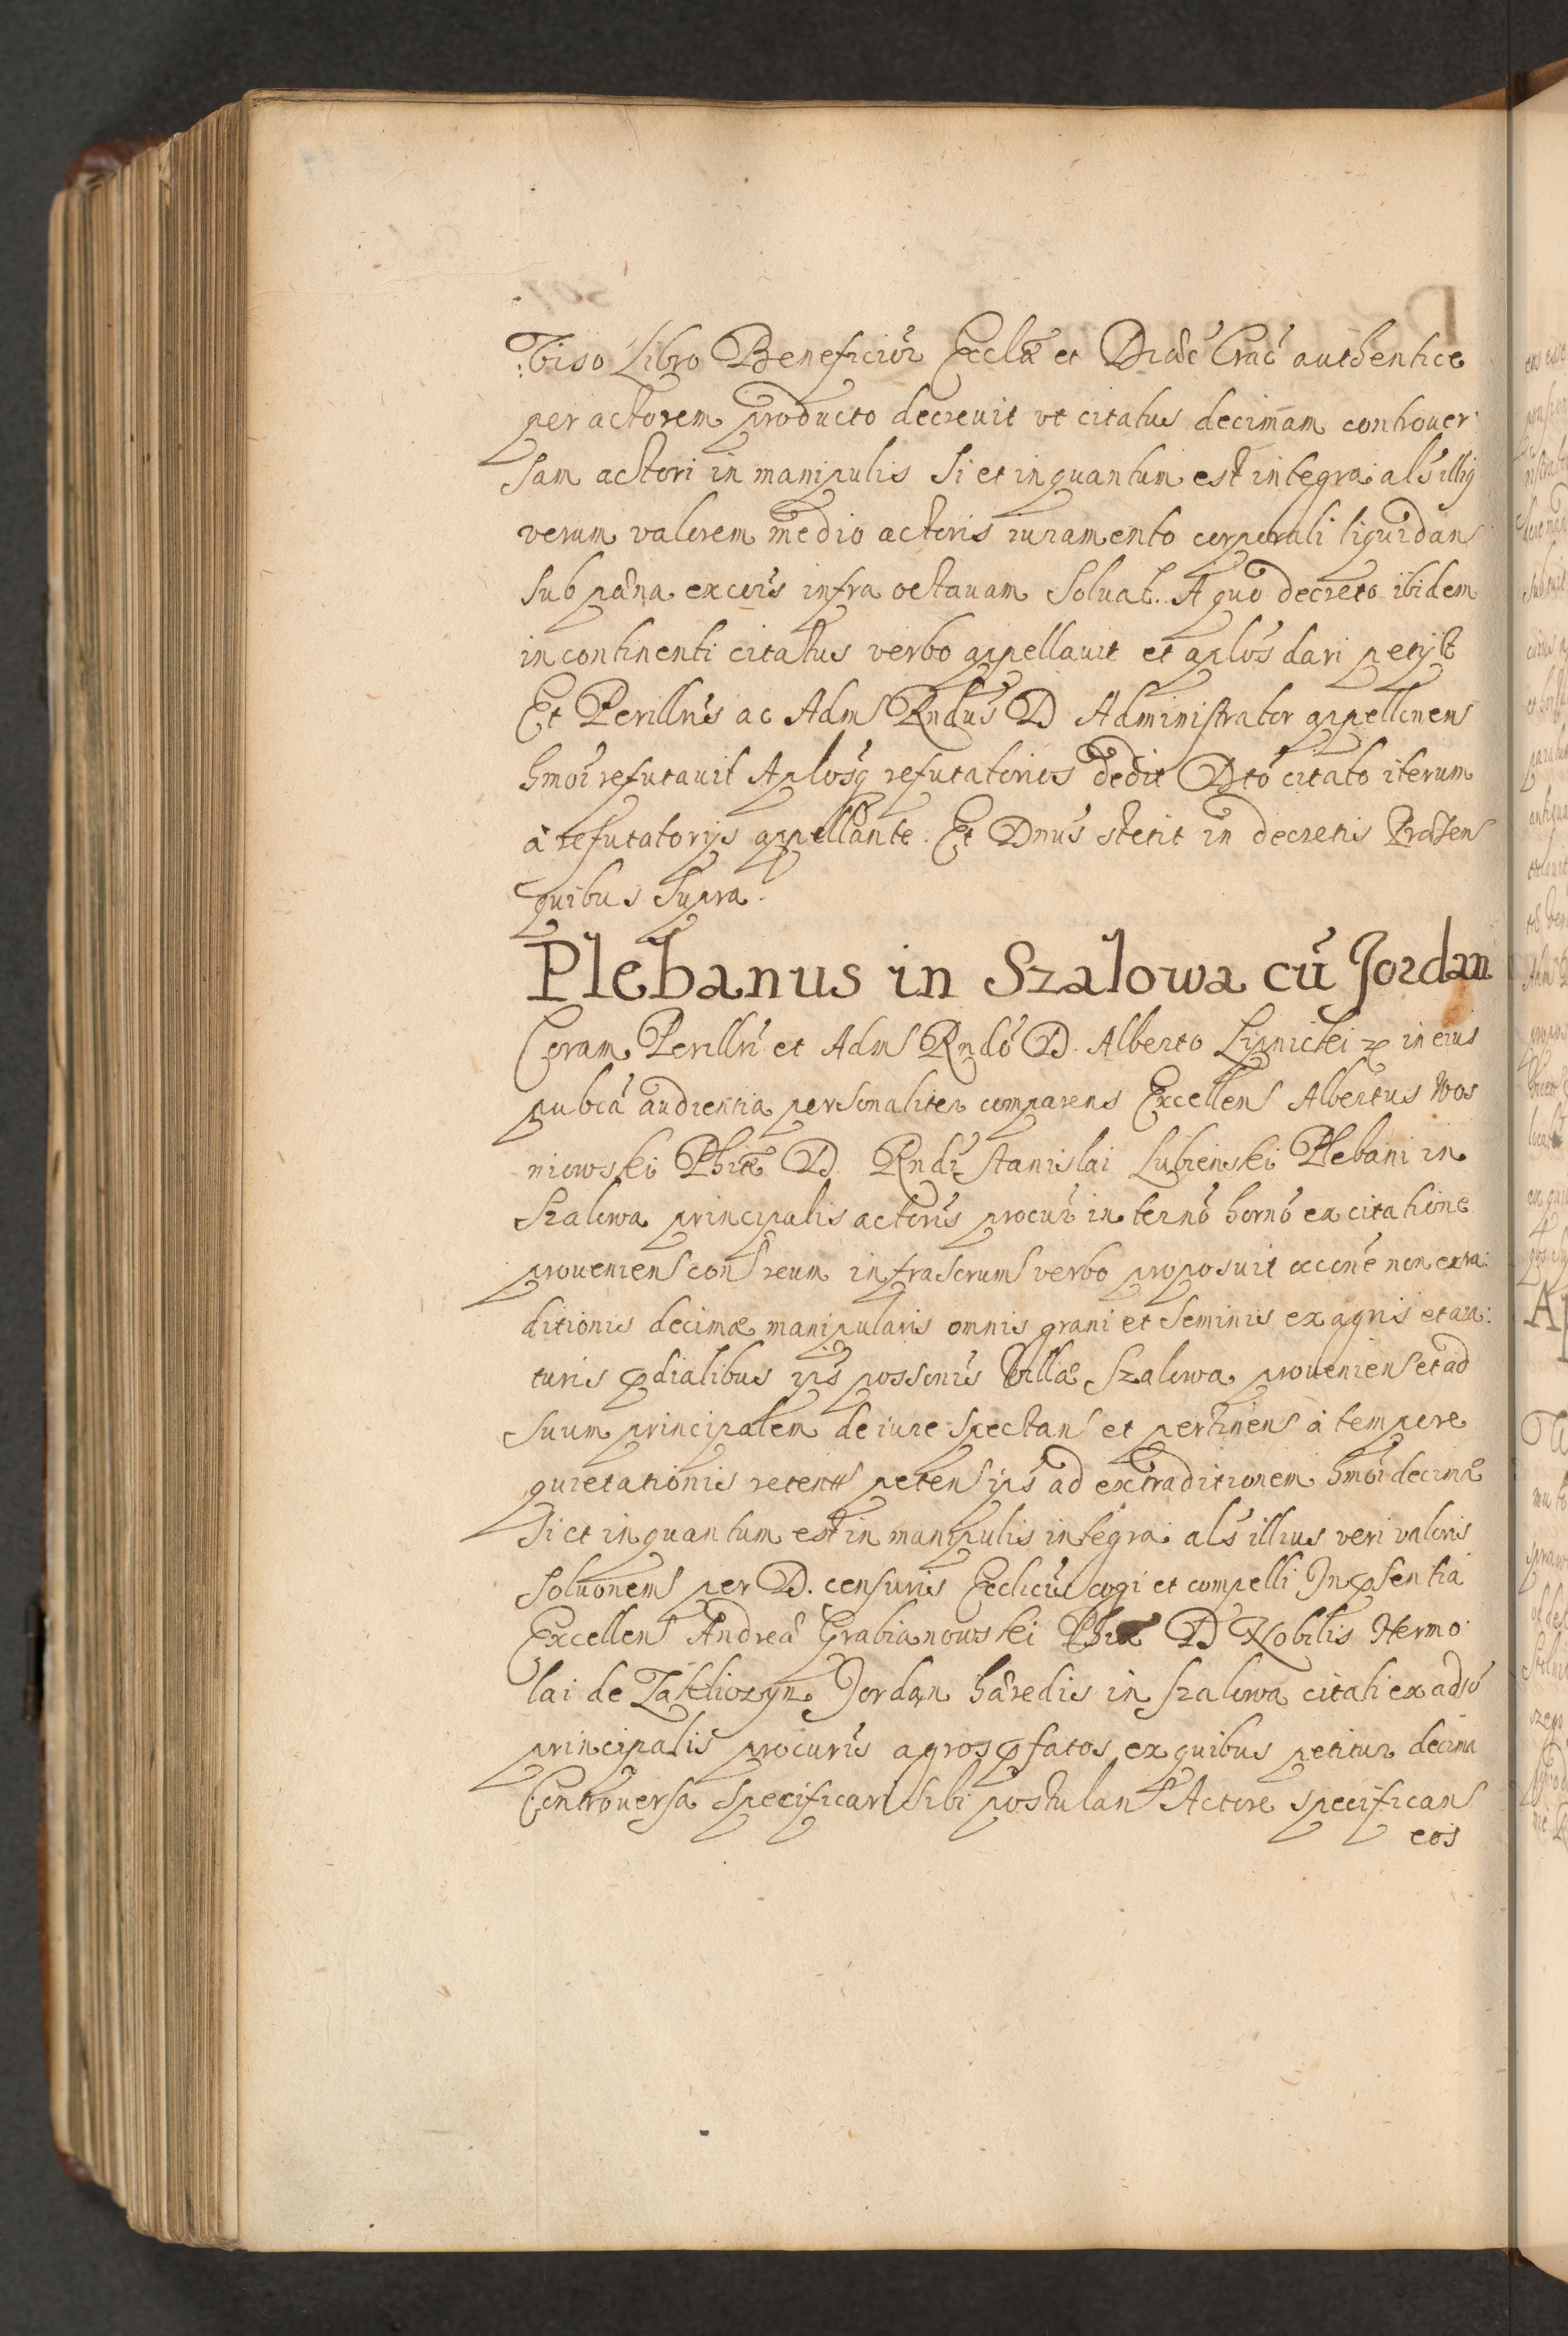 Viso Libro Beneficior Eccłæ et Diæc Crac authentice
per actorem producto decreuit vt citatus decimam controuer
sam actori in manipulis si et in quantum est integra als illiq
verum valorem medio actoris iuramento corporali liquidan
sub pæna excois infra octauam soluat. A quo decreto ibidem
in continenti citatus verbo appellauit et aplos dari petijt
Et Perillris ac Adm Rndus D Administrator appellonem
hmoi refutauit Aplosq refutatorios dedit Dto citato iterum
à refutatorijs appellante. Et Dnus stetit in decretis Præsen
quibus supra.
Plebanus in Szalowa cū Jordan
Coram Perillri et Adm Rndo D. Alberto Lipnicki in eius
pubca audientia personaliter comparens Excellens Albertus Wos
niowski Phiæ D. Rndi Stanislai Lubienski Plebani in
Szalowa principalis actoris procur in termo horno ex citatione
prouenien con reum infrascrum verbo proposuit accone non extra:
ditionis decimæ manipularis omnis grani et seminis ex agris et ara:
turis pdialibus ips possonis Villæ Szalowa prouenien et ad
suum principalem de iure spectan et pertinen à tempore
quietationis retent peten ips ad extraditionem hmoi decimæ
si et in quantum est in manipulis integra als illius veri valoris
soluonem per D. censuris Ecclicis cogi et compelli In psentia
Excellen Andreæ Grabianowski Phiæ D Nobilis Hermo
lai de Zakliczyn Jordan hæredis in Szalowa citati ex adso
principalis procuris agros pfatos ex quibus petitur decima
Controuersa specificari sibi postulan Actore specifican
eos